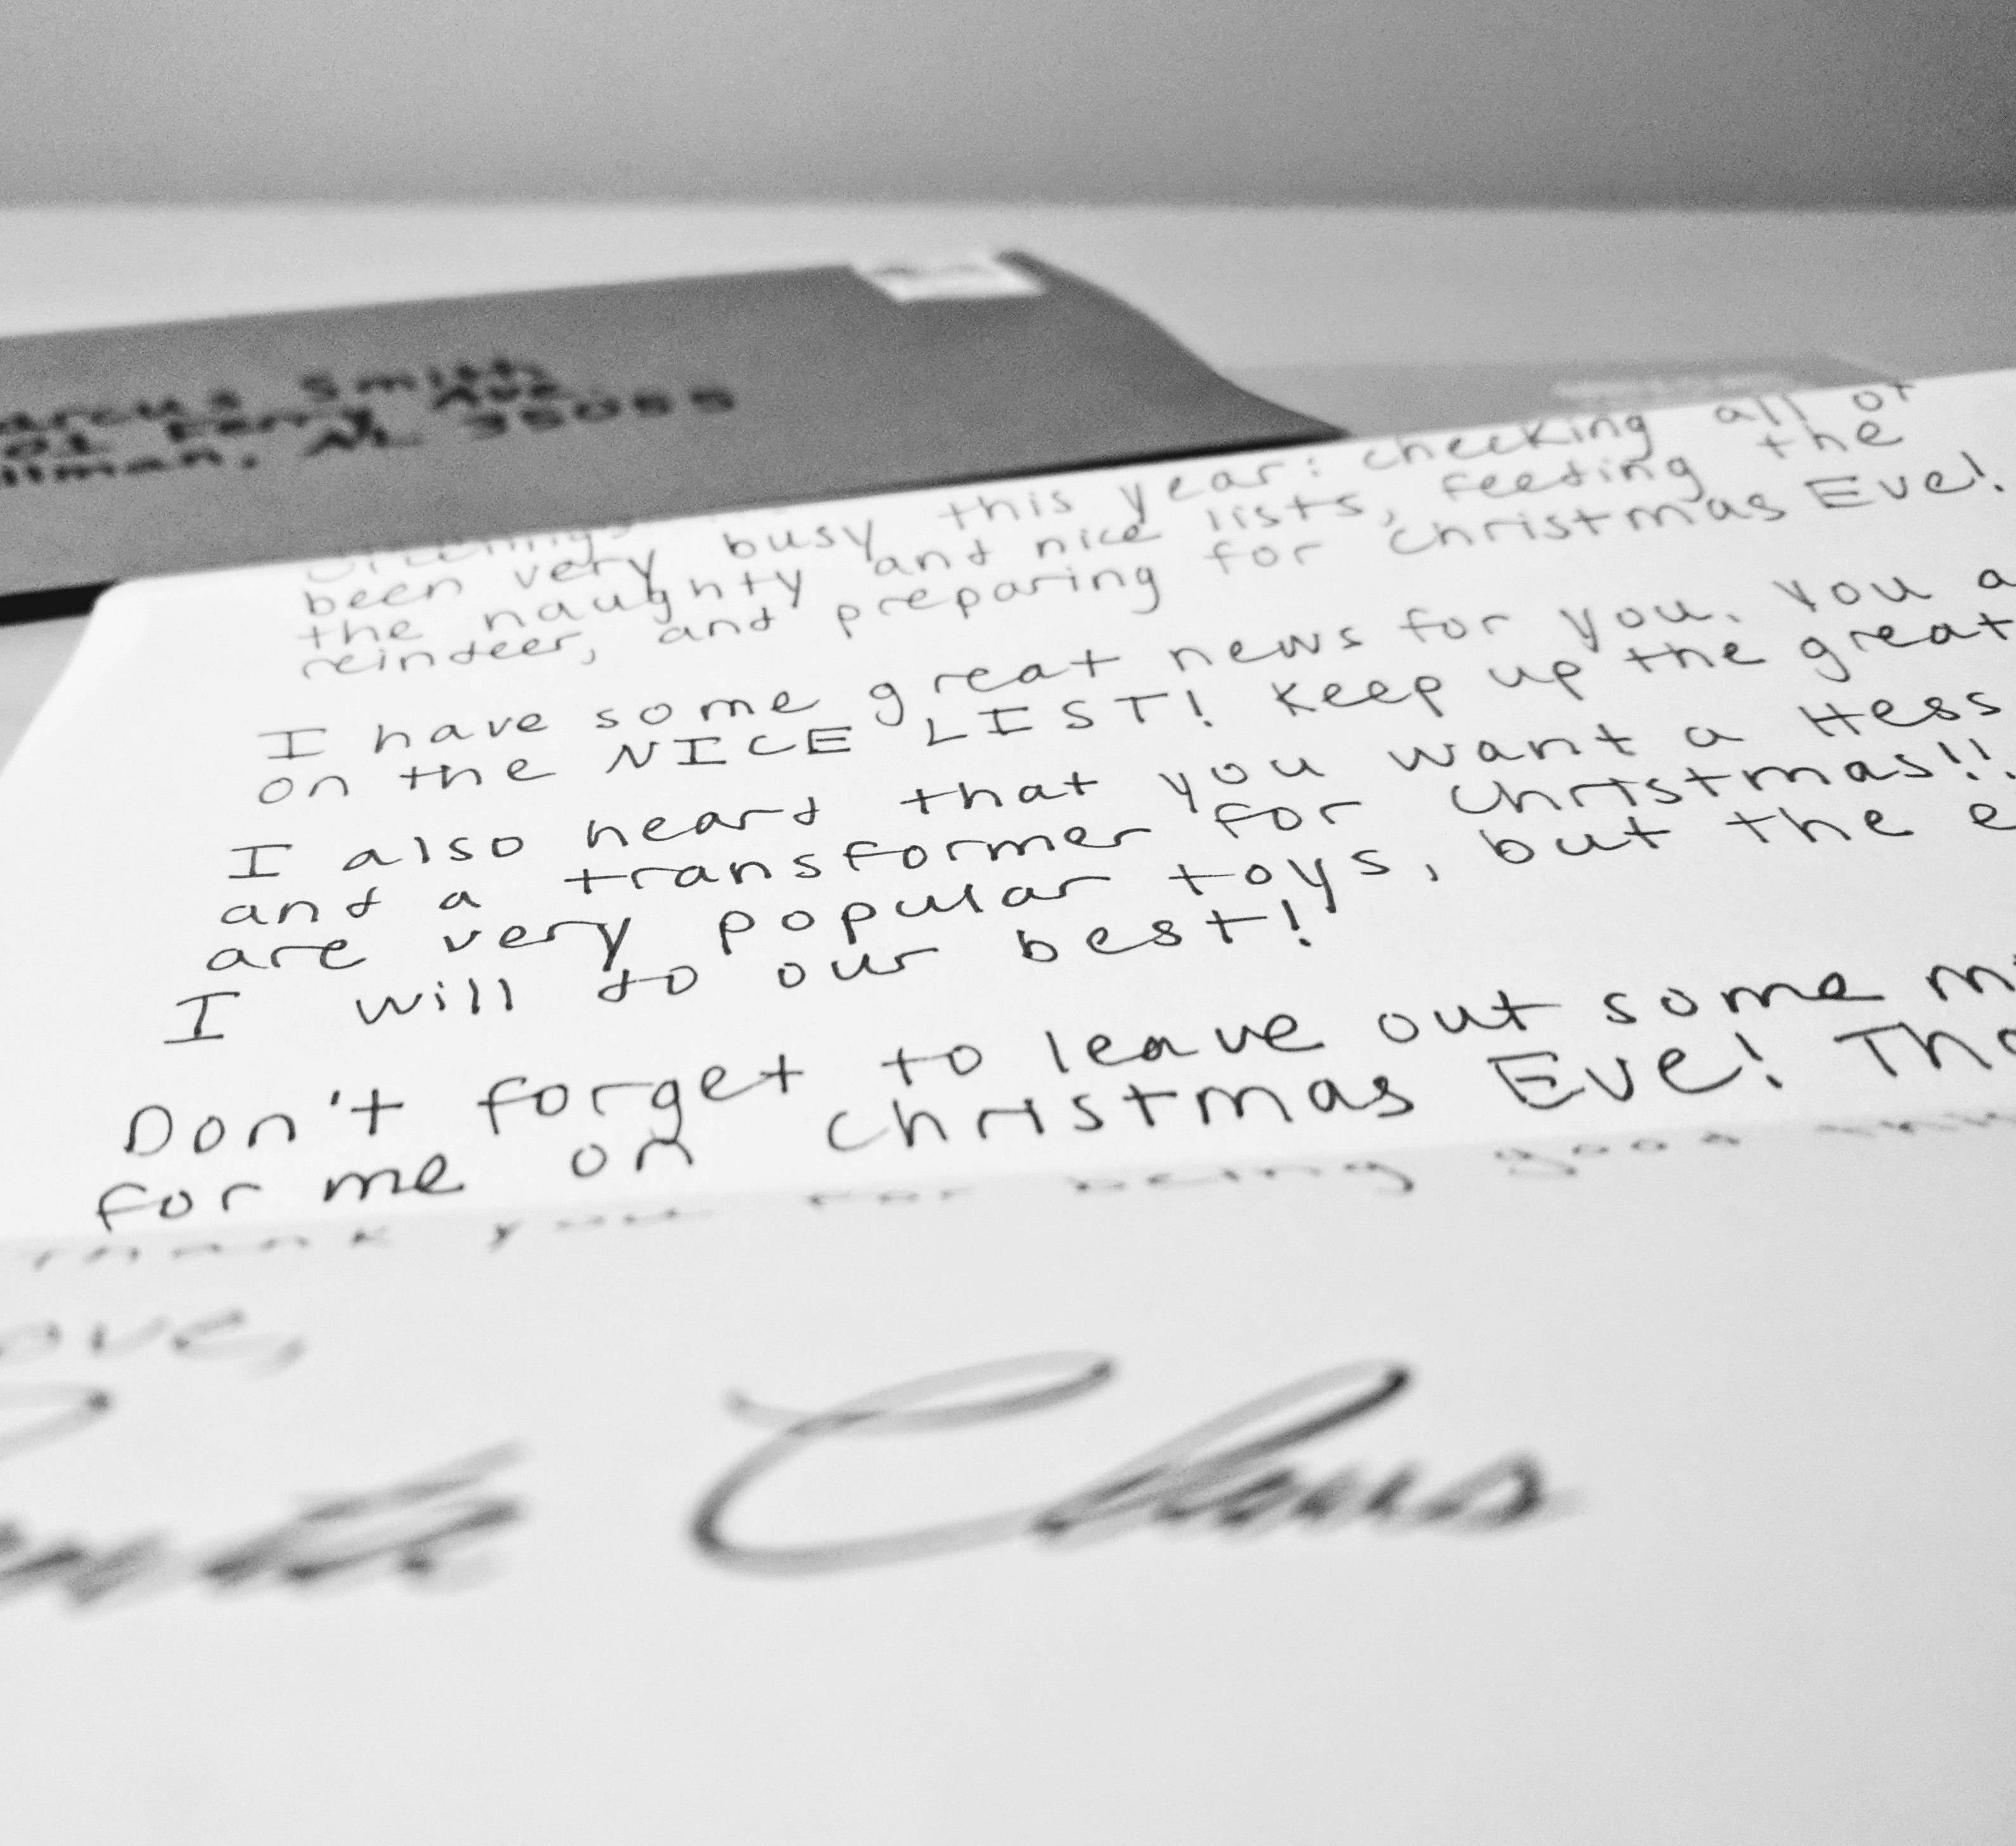 arcus Smith
Ave
llman, AL
Greetings
been very busy this year: checking all of
the naughty and nice lists, feeding the
reindeer, and preparing for Christmas Eve!
I have some great news for you. You a
on the NICE LIST! Keep up the great
I also heard that you want a Hess
and a transformer for Christmas!!
are very popular toys, but the e
I will do our best!
Don't forget to leave out some mi
for me on Christmas Eve! Tha
Thank you for being good
ove,
Claus